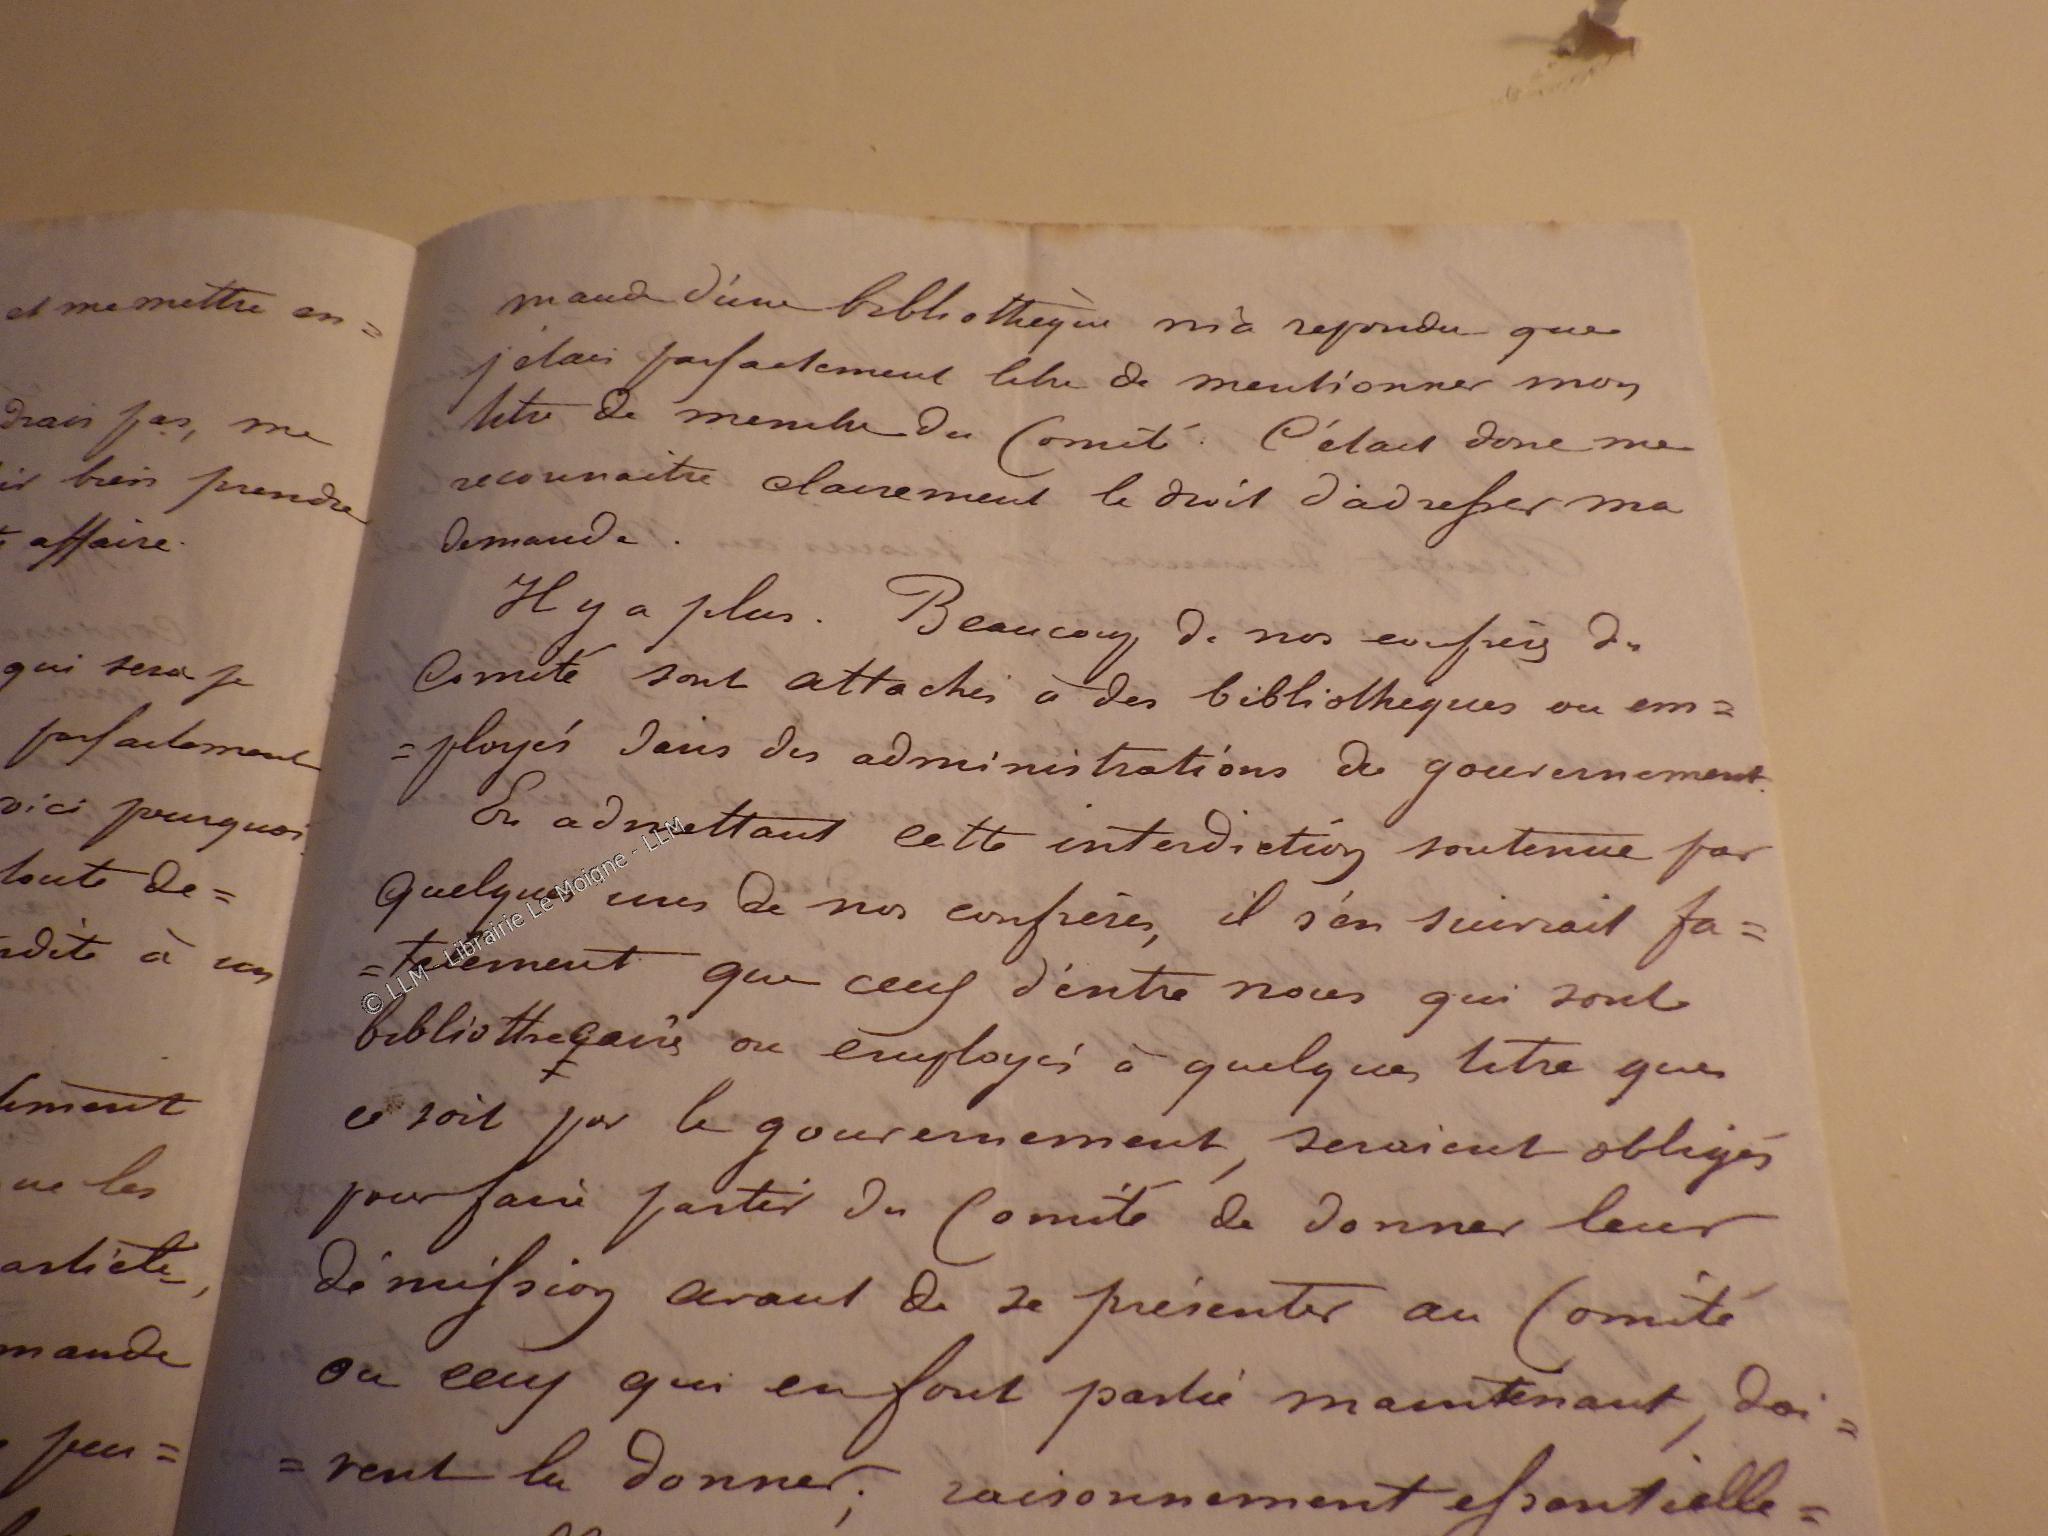 et me mettre en=
drais pas, me
ir bien prendre
affaire.
qui sera je
parfaitement
oici pourquoi
toute de=
rdite à un
ement
ue les
artiste,
mande
peu=
mande d'une bibliothèque m'a repondu que
j'étais parfaitement libre de mentionner mon
titre de membre du Comité. C'était donc me
reconnaitre clairement le droit d'adresser ma
demande.
Il y a plus. Beaucoup de nos confrères du
Comité sont attachés à des bibliothèques ou em=
=ployés dans des administrations du gouvernement.
En admettant cette interdiction soutenue par
quelques uns de nos confrères, il s'en suivrait fa=
=talement que ceux d'entre nous qui sont
bibliothecaires ou employés à quelques titre que
ce soit par le gouvernement, seraient obligés
pour faire partie du Comité de donner leur
démission avant de se présenter au Comité
ou ceux qui en font partie maintenant, doi=
=vent la donner; raisonnement essentielle=
© LLM - Librairie Le Moigne - LLM